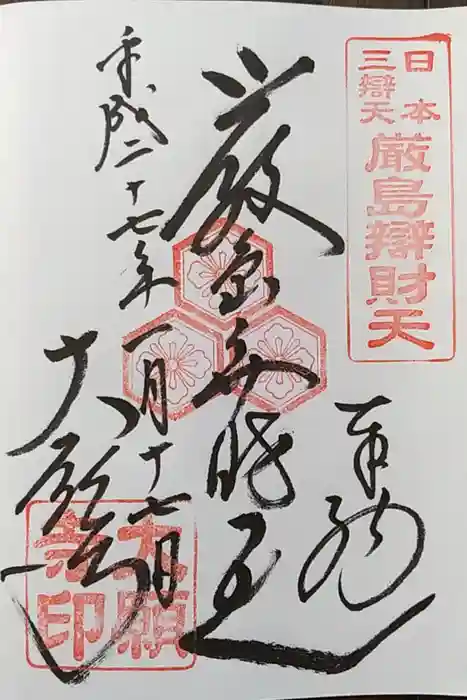 日本
三辯天
厳島辯財天
奉拝
厳島弁財天
平成二十七年一月十七日
大願寺
大願
寺印